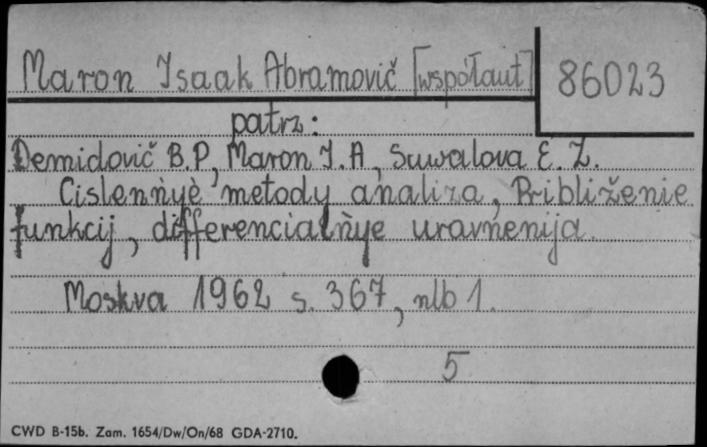 Maron Isaak Abramovič [współaut]
86023
patrz:
Demidovič B.P, Maron I.A, Suwalova E.Z.
Cislennyè metody analiza, Približenie
funkcij, differencialnye uravnenija.
Moskva 1962 s. 367, nlb 1.
5
CWD B-15b. Zam. 1654/Dw/On/68 GDA-2710.